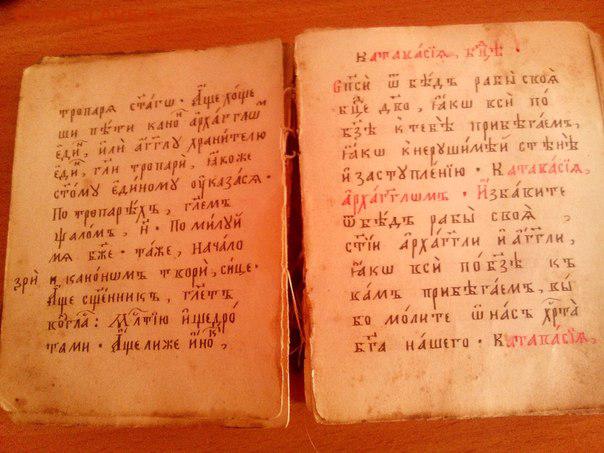 тропарѧ ст҃агѡ · А҆́ще хо́ще
ши пѣ́ти кано́н а҆рха́гг҃лѡм
є҆ди́н, и҆лѝ а҆́гг҃лу храни́телю
є҆ди́н, гл҃и тропарѝ, ꙗ҆́коже
ст҃о́му є҆ди́ному ᲂу҆каза́сѧ ·
По тропарѣ́хъ, гл҃ем
ѱало́мъ, н҃ · Поми́луй
мѧ бж҃е · та́же, нача́ло
зри и канонѡ́мъ творѝ, си́це ·
А҆́ще сщ҃е́нникъ, гл҃етъ
возгла́: Мл҃тїю и҆ щедро́
тами · А҆́ще ли же и҆́нокъ,
Катава́сїѧ, бц҃ѣ ·
Сп҃сѝ ѿ бѣ́дъ рабы̀ своѧ̀
бц҃е дв҃о, ꙗ҆́кѡ всѝ по
бз҃ѣ к̾ тебѣ̀ прибѣга́ем,
ꙗ҆́кѡ к̾ неруши́мѣй стѣнѣ̀
и҆ заступле́нїю · Катава́сїѧ,
а҆рха́гг҃лѡмъ · И҆зба́вите
ѿ бѣ́дъ рабы̀ своѧ̀,
ст҃і́и а҆рха́гг҃ли и҆ а҆́гг҃ли,
ꙗ҆́кѡ всѝ по бз҃ѣ къ
ва́мъ прибѣга́ем, вы̀
бо моли́те ѡ҆ на́съ хрⷭ҇та̀
бг҃а на́шего · Катава́сїѧ,